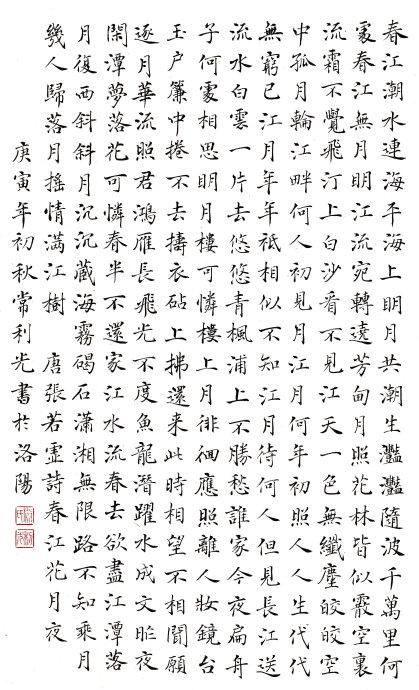 春江潮水連海平海上明月共潮生灩灩隨波千萬里何
處春江無月明江流宛轉遶芳甸月照花林皆似霰空裏
流霜不覺飛汀上白沙看不見江天一色無纖塵皎皎空
中孤月輪江畔何人初見月江月何年初照人人生代代
無窮已江月年年祗相似不知江月待何人但見長江送
流水白雲一片去悠悠青楓浦上不勝愁誰家今夜扁舟
子何處相思明月樓可憐樓上月徘徊應照離人妝鏡台
玉户簾中捲不去擣衣砧上拂還来此時相望不相聞願
逐月華流照君鴻雁長飛光不度魚龍潛躍水成文昨夜
閑潭夢落花可憐春半不還家江水流春去欲盡江潭落
月復西斜斜月沉沉藏海霧碣石瀟湘無限路不知乘月
幾人歸落月搖情滿江樹 唐張若虛詩春江花月夜
庚寅年初秋常利光書於洛陽